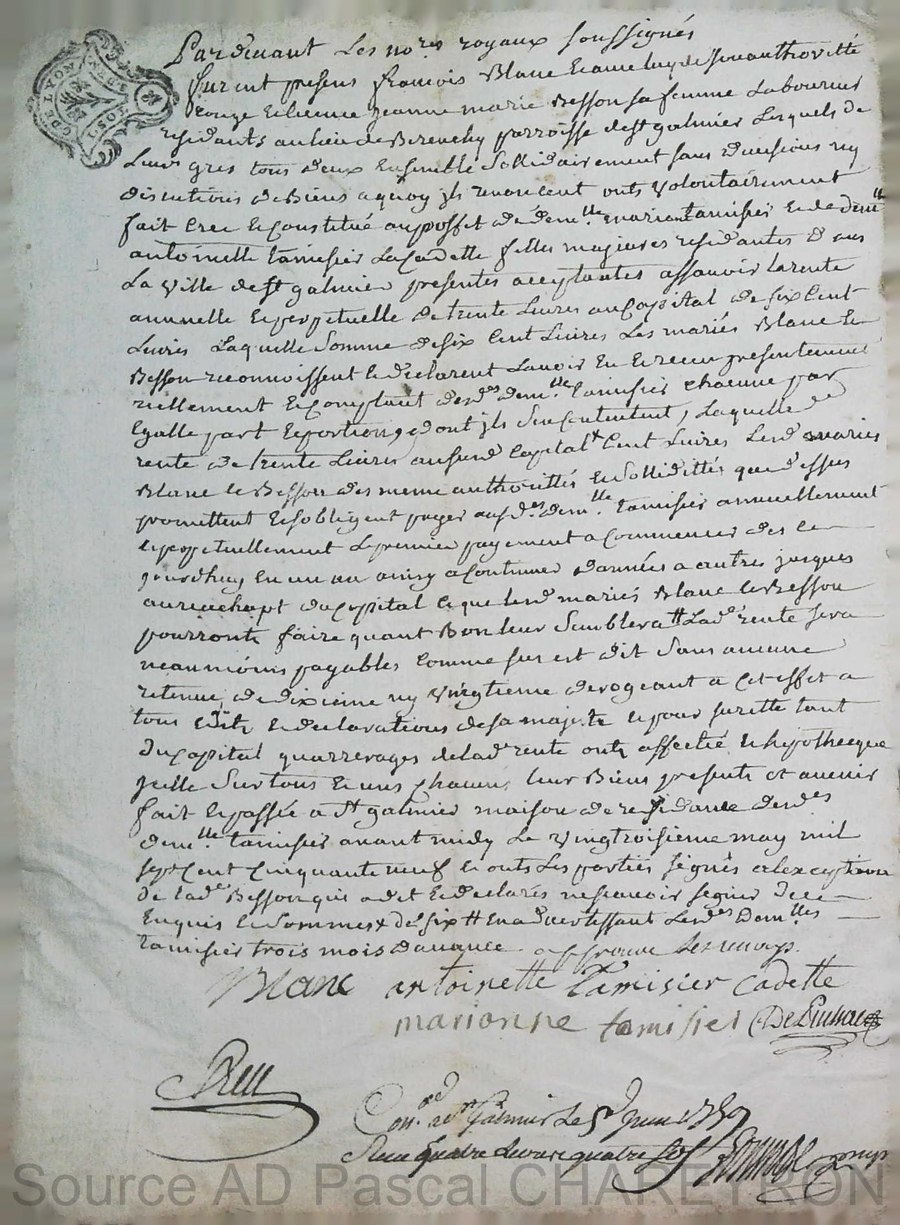 G DE LYON
Pardevant Les no.res royaux soussignés
furent presens françois Blanc et
rouge et Jeanne marie Besson sa femme Laboureur
residants au lieu de parroisse de st galmier Lesquels de
Leurs gres tous deux Ensemble sollidairement sans divisions ny
discutions de Biens a quoy jls renoncent onts volontairement
fait cree et Constitué au proffet de dem.lle marianne tamisier et de dem.lle
antoinette tamisier La Cadette filles majeures residantes d ans
La ville de st galmier presentes acceptantes assavoir la rente
annuelle et perpetuelle de trente Livres au Capital de six Cent
Livres Laquelle somme de six Cent Livres Les mariés Blanc et
Besson reconnoissent et declarent Lavoir Eu et receu presentement
reellement et Comptant desd.es dem.lle tamisier chacune par
Egalle part et portion, dont jls se Contentent, Laquelle
rente de trente Livres au fond Capital Cent Livres Lesd mariés
Blanc et Besson des meme authorittés et sollidittés que dessus
promettent et sobligent payer ausd.es dem.lle tamisier annuellement
et perpetuellement Le premier payement a Commencer des ce
jourdhuy En un an ainsy a Continuer dannées a autres jusques
au reachapt du Capital et que lesd mariés Blanc et Besson
pourronts faire quant Bon leur semblera Lad rente sera
neanmoins payables Comme sus est dit sans aucune
retenue de dixieme ny vingtieme derogeant a Cet effet a
tous Edits et declarations de sa majeste et pour surette tant
du Capital qu arrerages de lad rente onts affectté et hypotheque
jcelle sur tous et uns chacuns leur Biens presents et avenir
fait et passée a St galmier maison de residance desd.es
dem.lle tamisier avant midy Le vingtroisieme may mil
sept Cent Cinquante neuf et onts Les parties signés a lexception
de lad.e Besson qui a dit et declarés ne scavoir signer de ce
Enquis et sommés En advertissant Lesd.es Dem.lles
tamisier trois mois davance. approuve
Blanc antoinette tamisier cadette
marionne tamisier
Con.lé a St Galmier Le 5 Juin 1759
Recu quatre Livres quatre sols
Source AD Pascal CHAREYRON